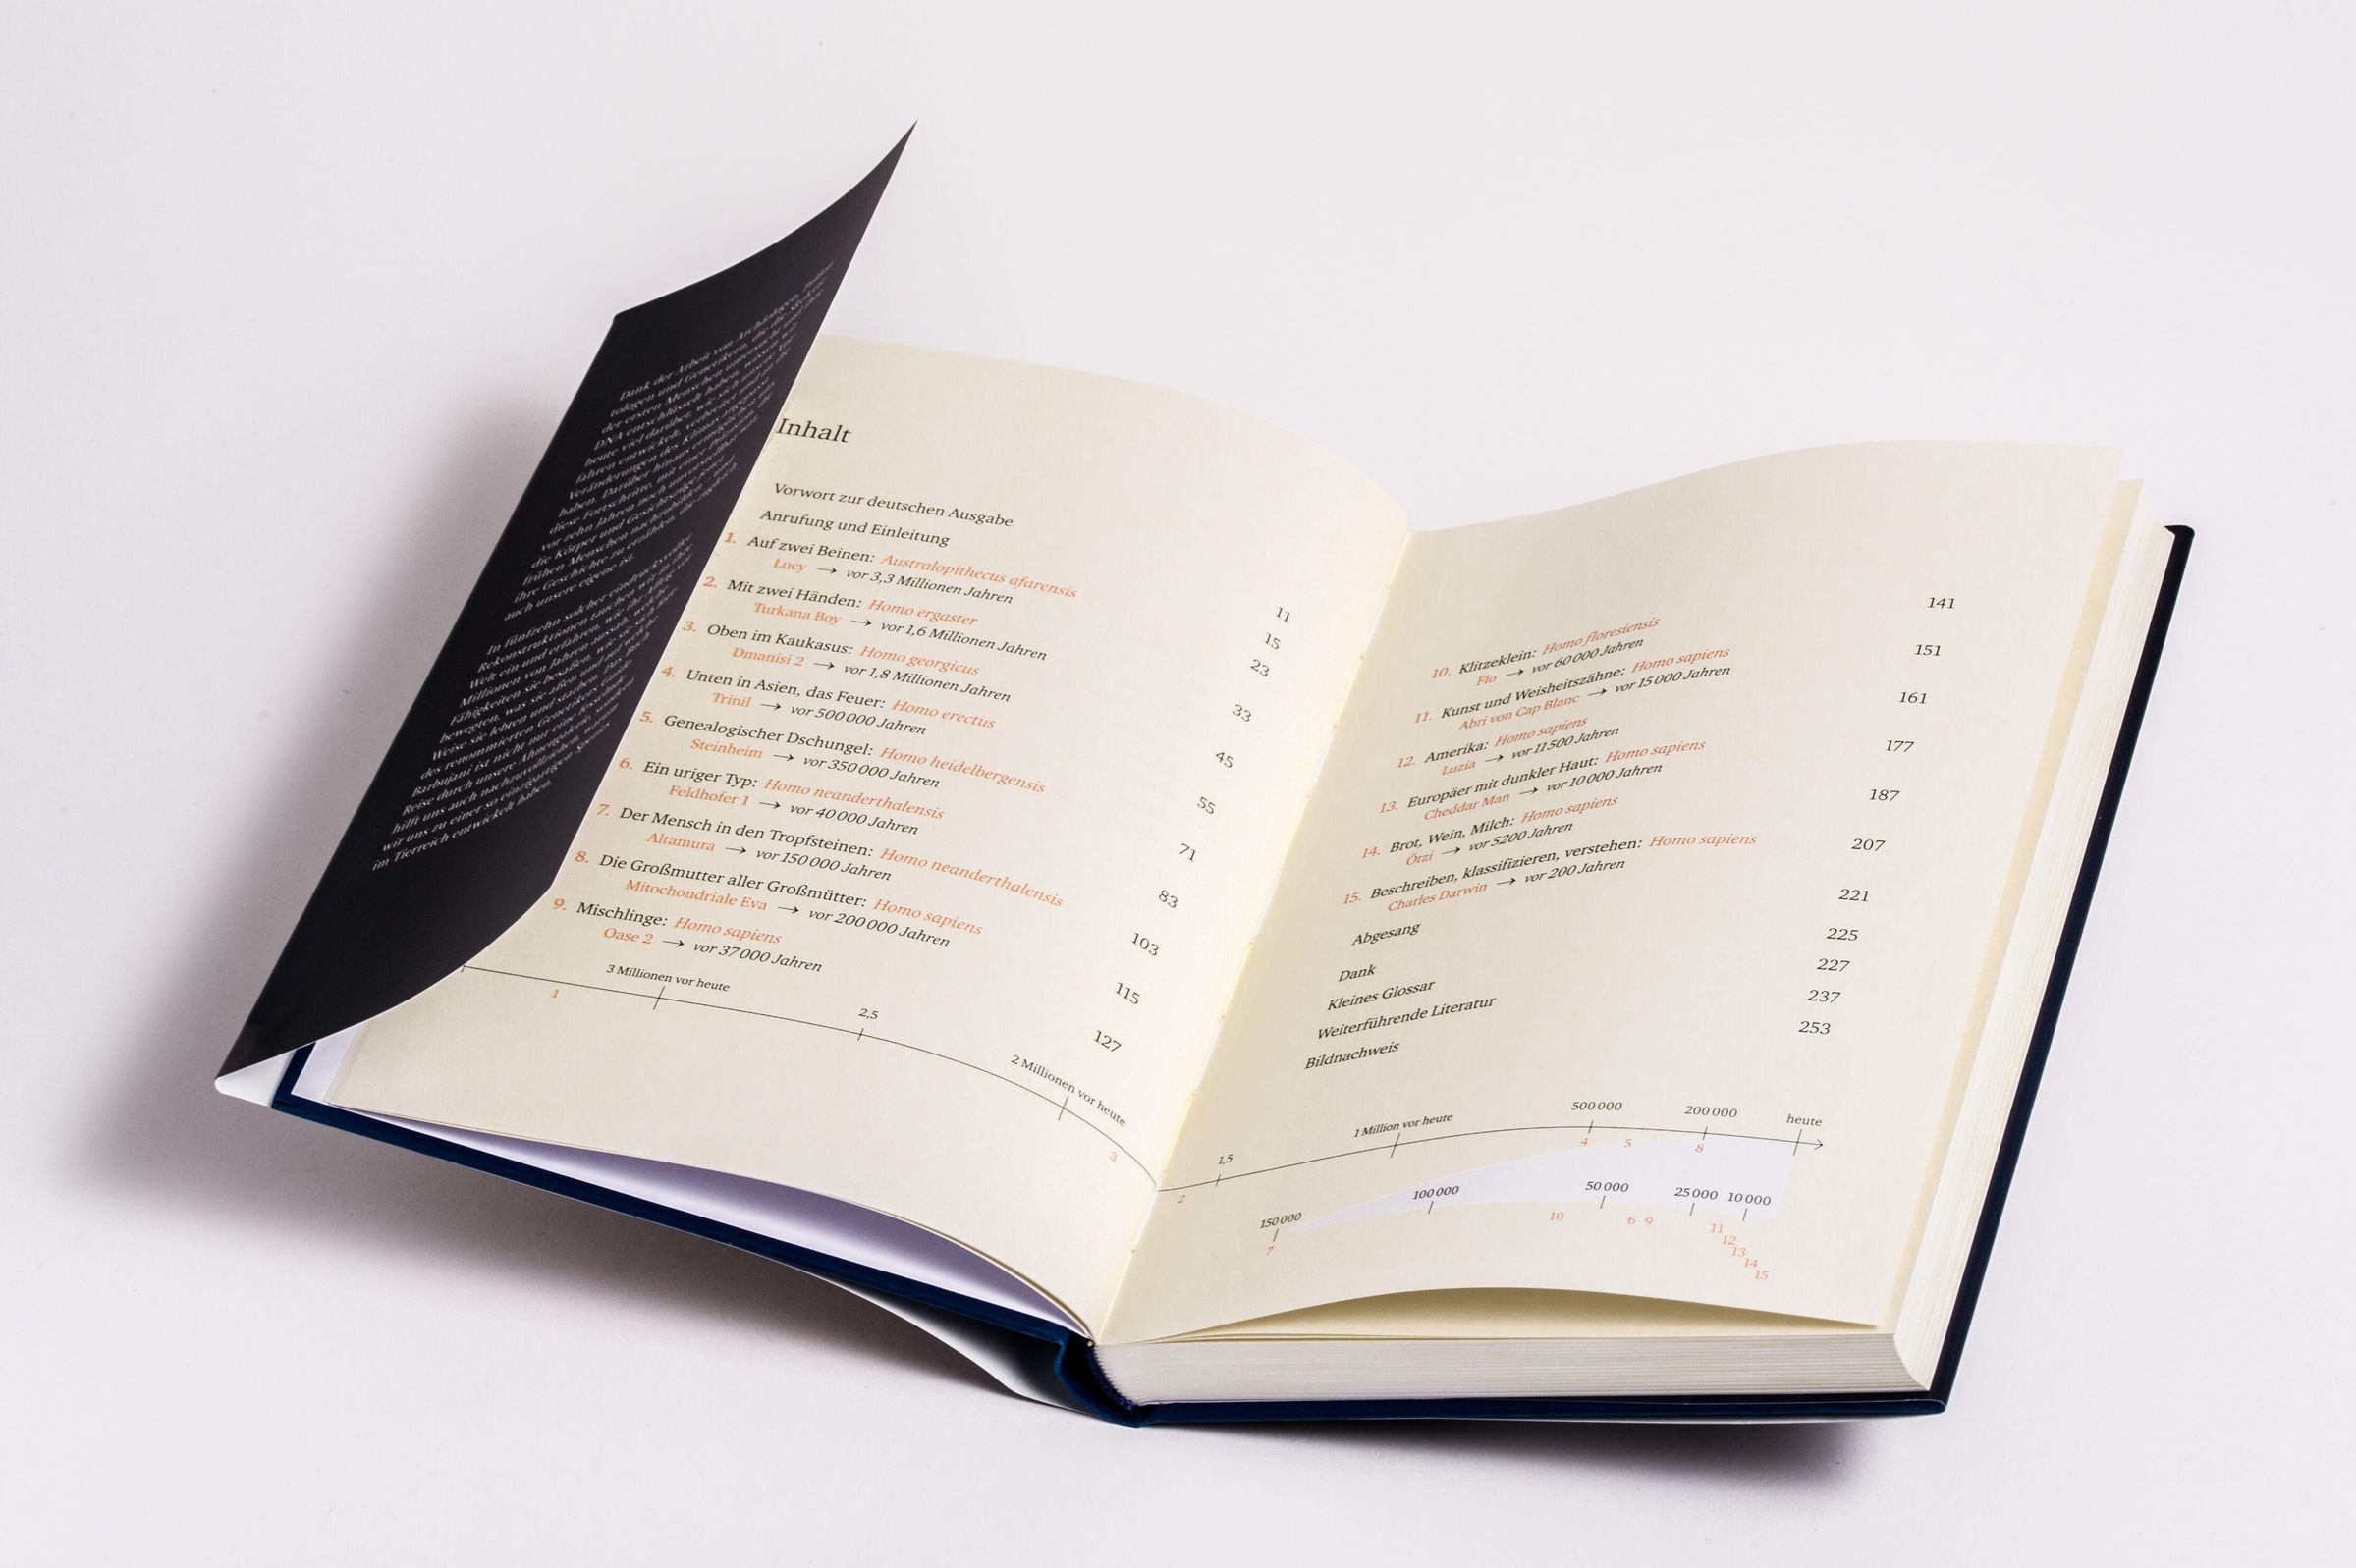 Dank der Arbeit von Archäologen,
tologen und Genetikern, die die Skelette
der ersten Menschen untersucht und ihre
DNA entschlüsselt haben, wissen wir
heute viel darüber, wie sich unsere Vor-
fahren entwickelt, verbreitet und an die
Veränderungen des Klimas angepasst
haben. Darüber hinaus ermöglichen
diese Fortschritte, mit einer Präzision, die
vor zehn Jahren noch unvorstellbar war
die Körper und Gesichtszüge jener
frühen Menschen nachzubilden und
ihre Geschichte zu erzählen, die zugleich
auch unsere eigene ist.
In fünfzehn solcher eindrucksvoller
Rekonstruktionen tauchen wir in ihre
Welt ein und erfahren, wie ihr Alltag vor
Millionen von Jahren aussah, welche
Fähigkeiten sie besaßen, wie sie sich fort-
bewegten, was sie aßen und auf welche
Weise sie lebten und starben. Das Buch
des renommierten Genetikers Guido
Barbujani ist nicht nur eine
Reise durch unsere Ahnengalerie, sondern
hilft uns auch nachzuvollziehen, wie
wir uns zu einer so einzigartigen Spezies
im Tierreich entwickelt haben.
Inhalt
Vorwort zur deutschen Ausgabe 11
Anrufung und Einleitung 15
1. Auf zwei Beinen: Australopithecus afarensis 23
Lucy → vor 3,3 Millionen Jahren
2. Mit zwei Händen: Homo ergaster 33
Turkana Boy → vor 1,6 Millionen Jahren
3. Oben im Kaukasus: Homo georgicus 45
Dmanisi 2 → vor 1,8 Millionen Jahren
4. Unten in Asien, das Feuer: Homo erectus 55
Trinil → vor 500 000 Jahren
5. Genealogischer Dschungel: Homo heidelbergensis 71
Steinheim → vor 350 000 Jahren
6. Ein uriger Typ: Homo neanderthalensis 83
Feldhofer 1 → vor 40 000 Jahren
7. Der Mensch in den Tropfsteinen: Homo neanderthalensis 103
Altamura → vor 150 000 Jahren
8. Die Großmutter aller Großmütter: Homo sapiens 115
Mitochondriale Eva → vor 200 000 Jahren
9. Mischlinge: Homo sapiens 127
Oase 2 → vor 37 000 Jahren
3 Millionen vor heute 2,5 2 Millionen vor heute
1 3
10. Klitzeklein: Homo floresiensis 141
Flo → vor 60 000 Jahren
11. Kunst und Weisheitszähne: Homo sapiens 151
Abri von Cap Blanc → vor 15 000 Jahren
12. Amerika: Homo sapiens 161
Luzia → vor 11 500 Jahren
13. Europäer mit dunkler Haut: Homo sapiens 177
Cheddar Man → vor 10 000 Jahren
14. Brot, Wein, Milch: Homo sapiens 187
Ötzi → vor 5200 Jahren
15. Beschreiben, klassifizieren, verstehen: Homo sapiens 207
Charles Darwin → vor 200 Jahren
Abgesang 221
Dank 225
Kleines Glossar 227
Weiterführende Literatur 237
Bildnachweis 253
1,5 1 Million vor heute 500 000 200 000 heute
2 4 5 8
150 000 100 000 50 000 25 000 10 000
7 10 6 9 11
12
13
14
15